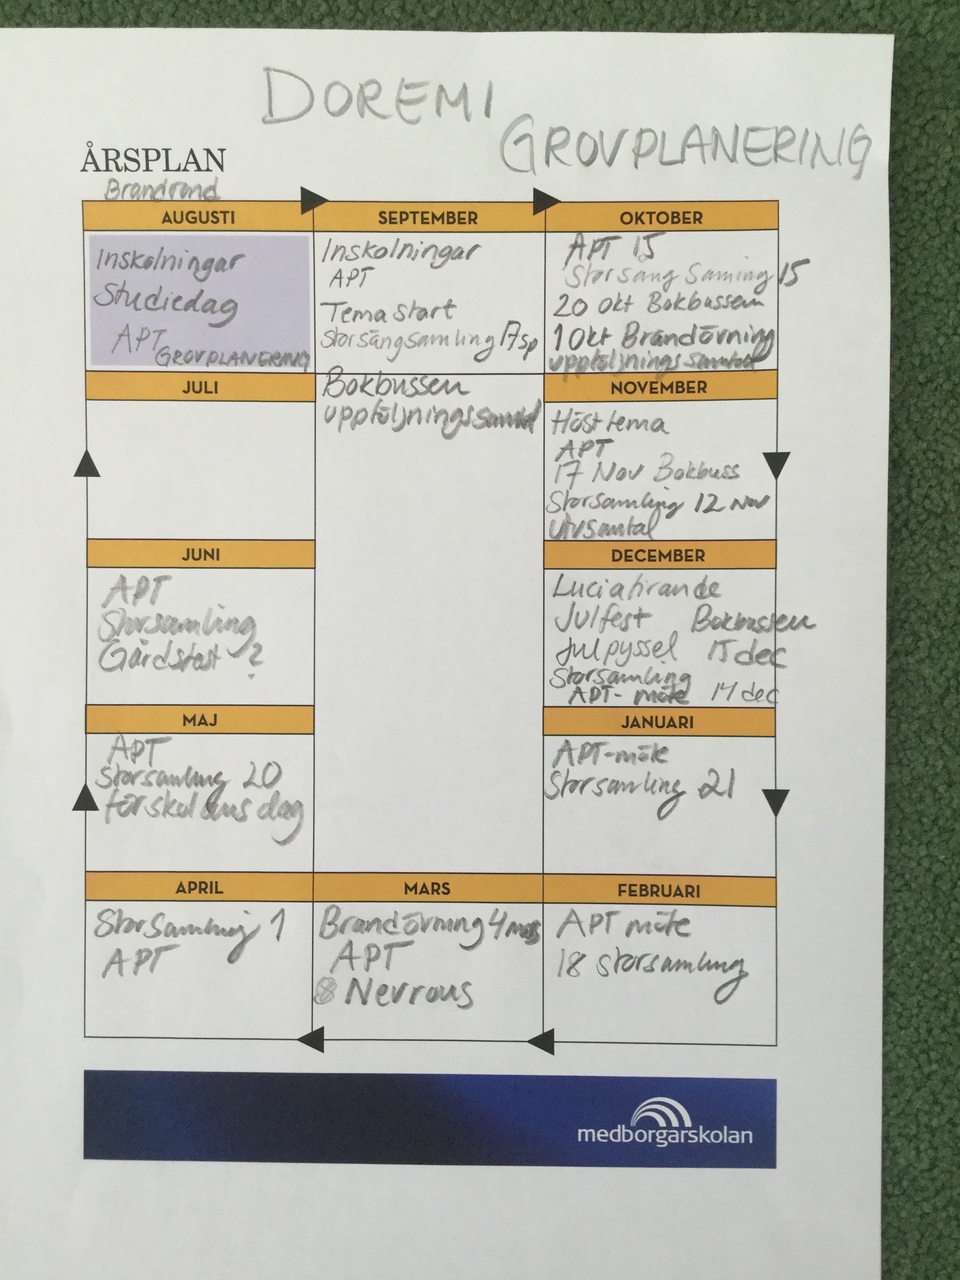 DOREMI
GROVPLANERING
ÅRSPLAN
Brandrond
AUGUSTI
Inskolningar
Studiedag
APT
GROVPLANERING
SEPTEMBER
Inskolningar
APT
Tema start
Storsångsamling 17sp
Bokbussen
uppföljningssamtal
OKTOBER
APT 15
Storsång Samling 15
20 okt Bokbussen
1 Okt Brandövning
uppföljnings samtal
NOVEMBER
Höst tema
APT
17 Nov Bokbuss
Storsamling 12 Nov
utvsamtal
DECEMBER
Luciafirande
Julfest Bokbussen
Julpyssel 15 dec
Storsamling
APT-möte 14 dec
JANUARI
APT-möte
Storsamling 21
FEBRUARI
APT möte
18 storsamling
MARS
Brandövning 4 mars
APT
8 Nevrous
APRIL
Storsamling 1
APT
MAJ
APT
Storsamling 20
förskolans dag
JUNI
APT
Storsamling
Gårdsfest ?
JULI
medborgarskolan